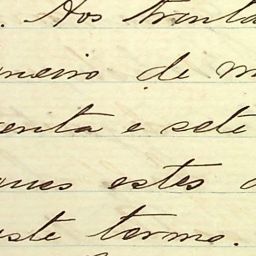 . Aos trinta
aneiro de m
enta e sete
ques estes a
este termo.